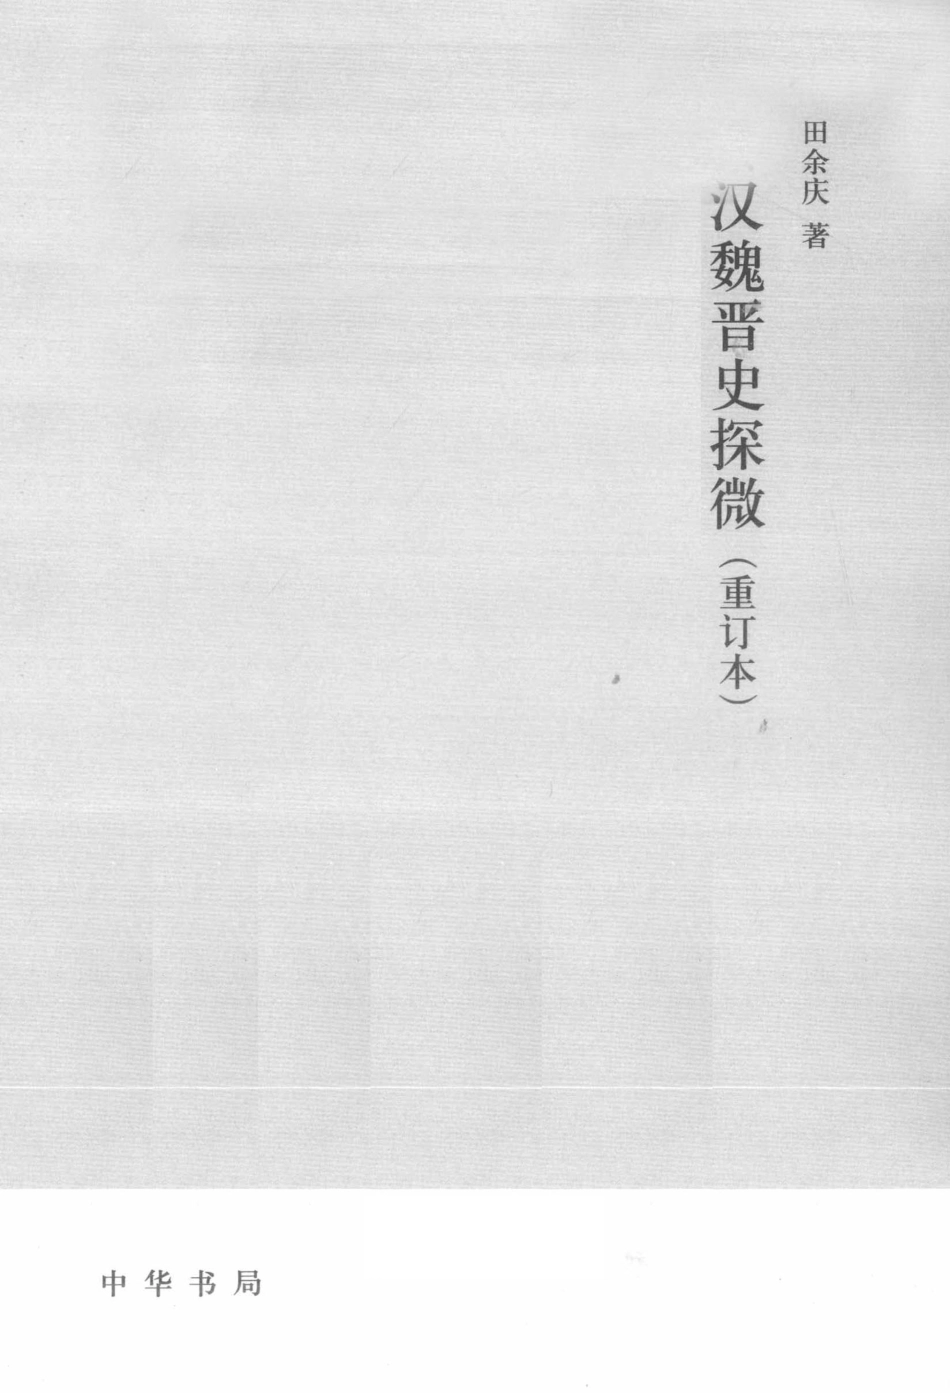 田余庆 著
汉魏晋史探微（重订本）
中华书局